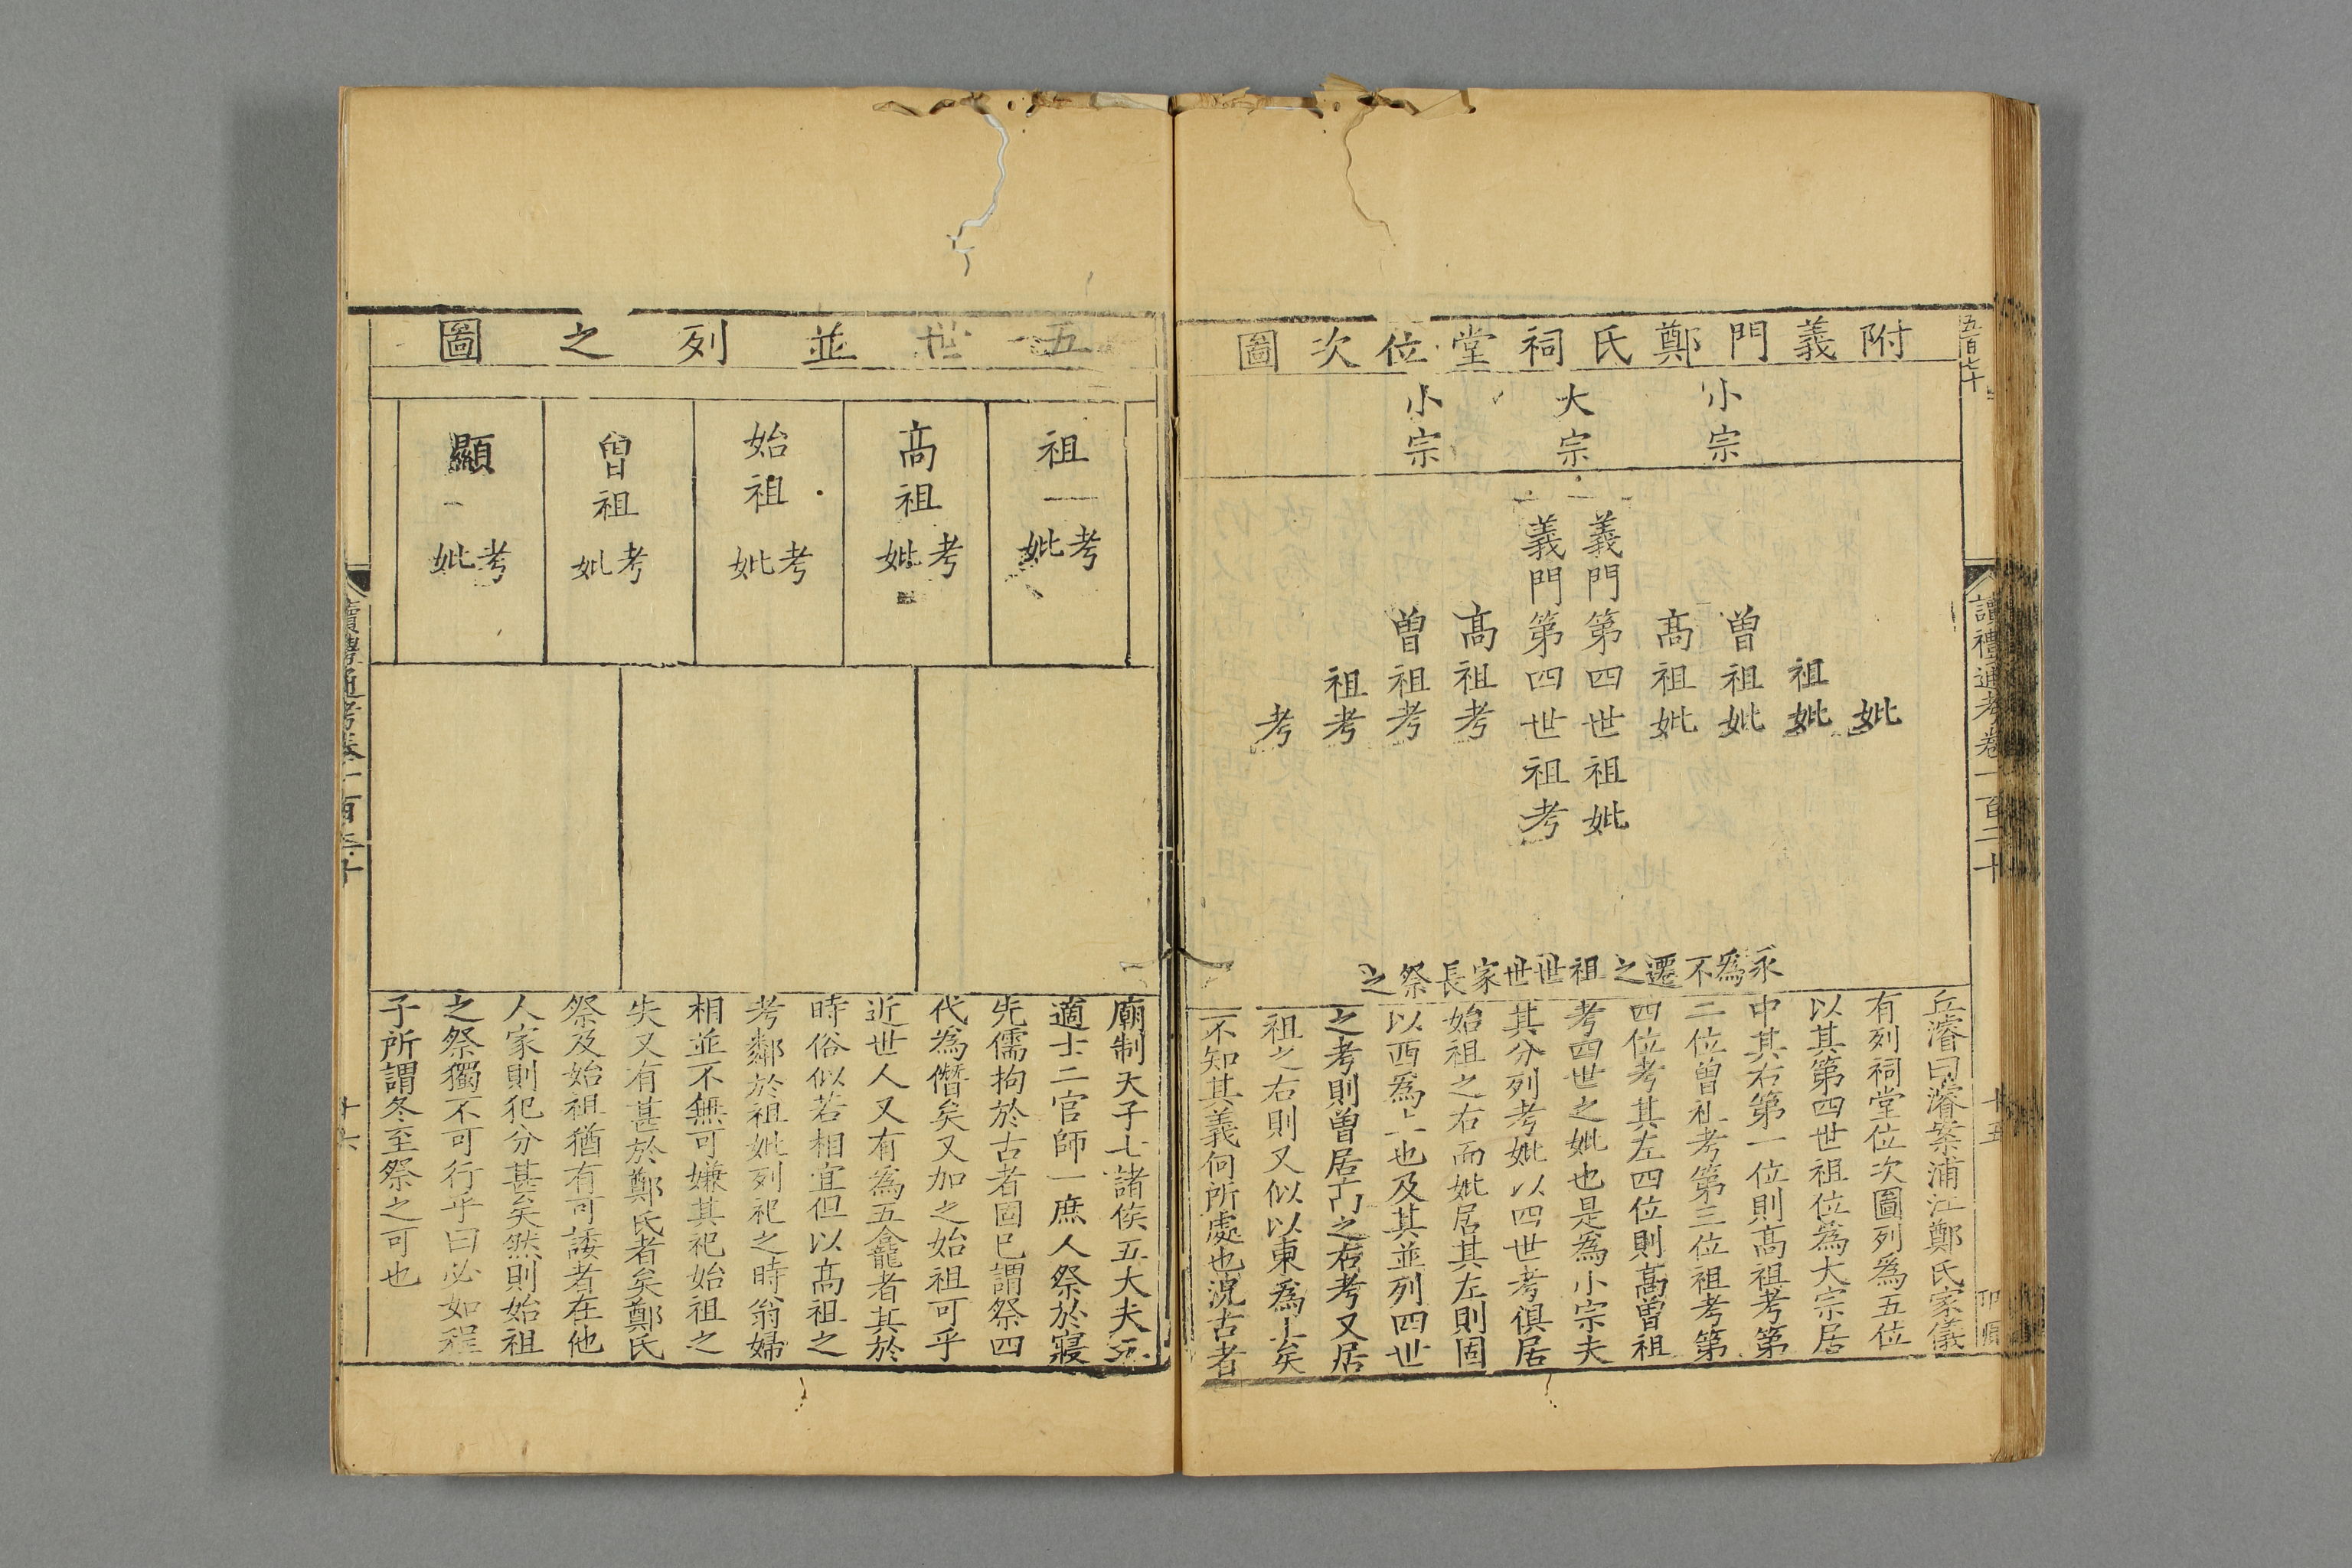 附義門鄭氏祠堂位次圖
小宗
大宗
小宗
妣
祖妣
曾祖妣
高祖妣
義門第四世祖妣
義門第四世祖考
高祖考
曾祖考
祖考
考
永為不遷之祖世世家長祭之
丘濬曰濬案浦江鄭氏家儀
有列祠堂位次圖列為五位
以其第四世祖位為大宗居
中其右第一位則高祖考第
二位曾祖考第三位祖考第
四位考其左四位則高曾祖
考四世之妣也是為小宗夫
其分列考妣以四世考俱居
始祖之右而妣居其左則固
以西為上也及其並列四世
之考則曾居高之右考又居
祖之右則又似以東為上矣
不知其義何所處也況古者
五百七十
讀禮通考卷一百二十
十五
五世並列之圖
祖考妣
高祖考妣
始祖考妣
曾祖考妣
顯考妣
廟制天子七諸侯五大夫三
適士二官師一庶人祭於寢
先儒拘於古者固已謂祭四
代為僭矣又加之始祖可乎
近世人又有為五龕者其於
時俗似若相宜但以高祖之
考鄰於祖妣列祀之時翁婦
相並不無可嫌其祀始祖之
失又有甚於鄭氏者矣鄭氏
祭及始祖猶有可諉者在他
人家則犯分甚矣然則始祖
之祭獨不可行乎曰必如程
子所謂冬至祭之可也
讀禮通考卷一百二十
十六